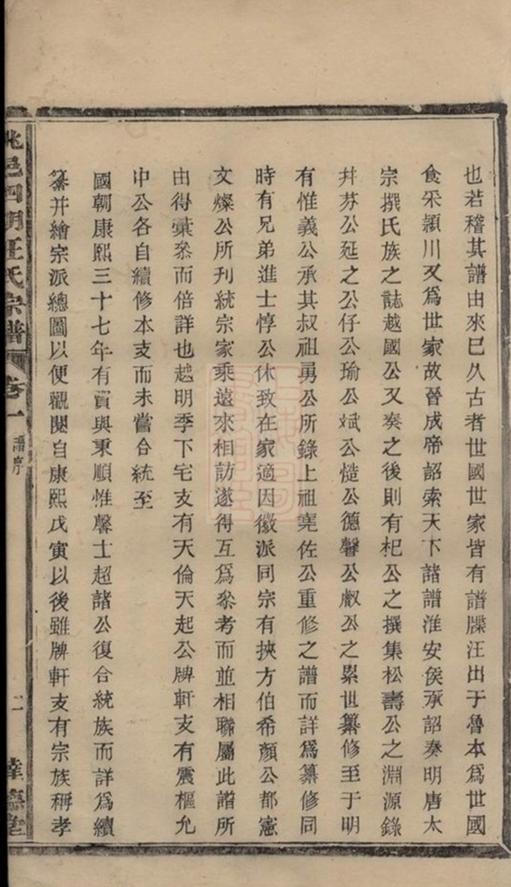 也若稽其譜由來已久古者世國世家皆有譜牒汪出于魯本爲世國
食采潁川又爲世家故晉成帝詔索天下諸譜淮安侯承詔奏明唐太
宗撰氏族之誌越國公又奏之後則有杞公之撰集松壽公之淵源錄
幷芬公延之公仔公瑜公斌公慥公德馨公澂公之累世纂修至于明
有惟義公承其叔祖勇公所錄上祖堯佐公重修之譜而詳爲纂修同
時有兄弟進士惇公休致在家適因徽派同宗有挾方伯希顏公都憲
文燦公所刊統宗家乘遠來相訪遂得互爲叅考而並相聯屬此譜所
由得彙叅而倍詳也越明季下宅支有天倫天起公牌軒支有震樞允
中公各自續修本支而未嘗合統至
國朝康熙三十七年有實與秉順惟馨士超諸公復合統族而詳爲續
纂幷繪宗派總圖以便觀閱自康熙戊寅以後雖牌軒支有宗族稱孝
姚邑四明汪氏宗譜 卷一 譜序 二